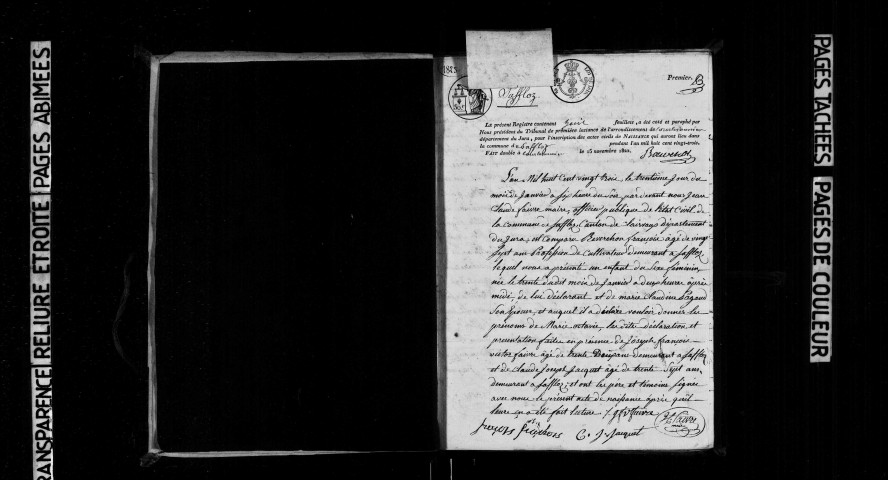 PAGES ABIMEES
RELIURE ETROITE
TRANSPARENCE
PAGES TACHÉES
PAGES DE COULEUR
1823
Saffloz
Premier.
Le présent Registre contenant feuillets, a été coté et paraphé par
Nous président du Tribunal de première instance de l'arrondissement de
département du Jura, pour l'inscription des actes civils de NAISSANCE qui auront lieu dans
la commune de Saffloz pendant l'an mil huit cent vingt-trois.
FAIT double à le 15 novembre 1822.
L'an Mil huit Cent vingt trois, le trentième Jour du
mois de Janvier a six heure du soir par devant nous Jean
Claude faivre maire, officier publique de l'état Civil de
la commune de Saffloz Canton de Clairvaux département
du Jura, est Comparu françois âgé de vingt
Sept ans Profession de Cultivateur demeurant a Saffloz
lequel nous a présenté un enfant du Sexe feminin,
née le trente dudit mois de Janvier a deux heures après
midi, de lui déclarant et de marie Claudine
Son Epouse, et auquel il a déclaré vouloir donner les
prénoms de Marie octavie, les dite déclaration et
presentation faites en présence de Joseph françois
victor faivre âgé de trente ans demeurant a Saffloz
et de Claude Joseph Jacquet âgé de trente Sept ans
demeurant a Saffloz, et ont les père et témoins signés
avec nous le présent acte de naissance après qu'il
leur en a été fait lecture. J f V faivre
C. J. Jacquet
faivre